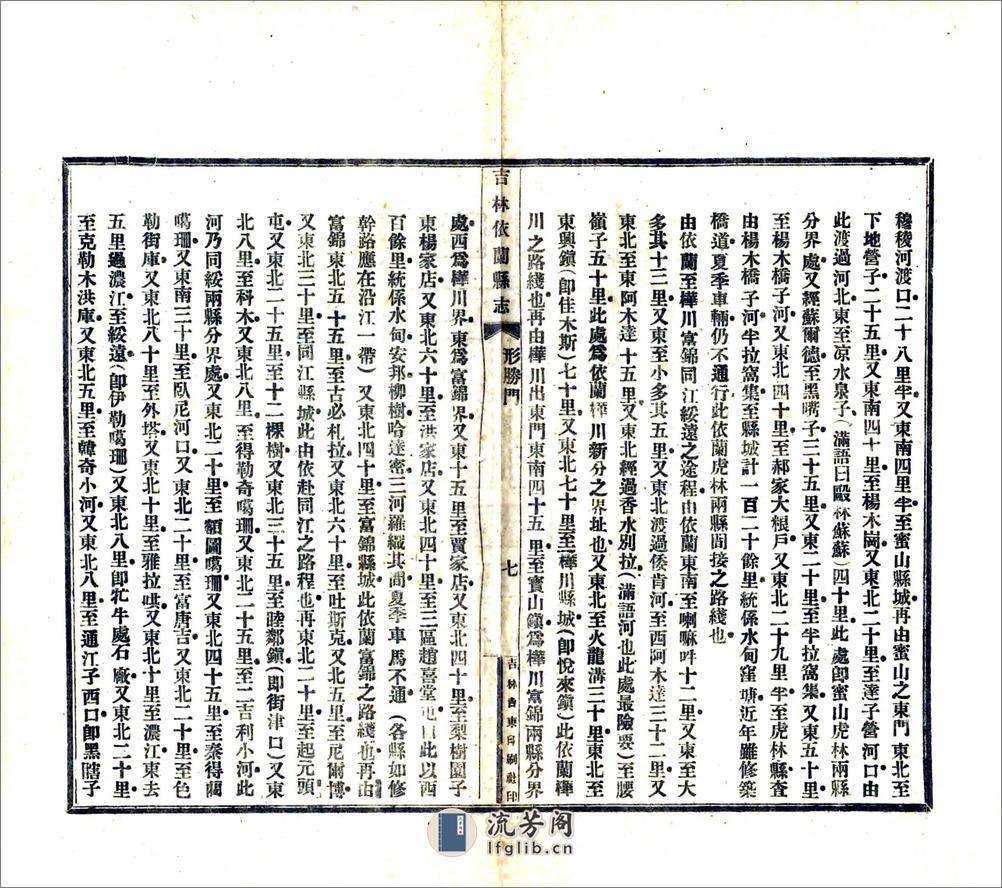 穆稜河渡口二十八里半又東南四里半至蜜山縣城再由蜜山之東門東北至
下地營子二十五里又東南四十里至楊木崗又東北二十里至達子營河口由
此渡過河北東至凉水泉子(滿語曰毆林蘇蘇)四十里此處卽蜜山虎林兩縣
分界處又經蘇爾德至黑嘴子三十五里又東二十里至半拉窩集又東五十里
至楊木橋子河又東北四十里至郝家大根戶又東北二十九里半至虎林縣查
由楊木橋子河半拉窩集至縣城計一百二十餘里統係水甸窪塘近年雖修築
橋道夏季車輛仍不通行此依蘭虎林兩縣間接之路綫也
由依蘭至樺川富錦同江綏遠之途程由依蘭東南至喇嘛吽十二里又東至大
多其十三里又東至小多其五里又東北渡過倭肯河至西阿木達三十二里又
東北至東阿木達十五里又東北經過香水別拉(滿語河也此處最險要)至腰
嶺子五十里此處爲依蘭樺川新分之界址也又東北至火龍溝三十里東北至
東興鎭(卽佳木斯)七十里又東北七十里至樺川縣城(卽悅來鎭)此依蘭樺
川之路綫也再由樺川出東門東南四十五里至寶山鎭爲樺川富錦兩縣分界
吉林依蘭縣志
形勝門
七
吉林省東印刷社印
處西爲樺川界東爲富錦界又東十五里至賈家店又東北四十里至梨樹園子
東楊家店又東北六十里至洪家店又東北四十里至三區趙喜堂屯自此以西
百餘里統係水甸安邦柳樹哈達密三河羅織其間夏季車馬不通(各縣如修
幹路應在沿江一帶)又東北四十里至富錦縣城此依蘭富錦之路綫也再由
富錦東北五十五里至古必札拉又東北六十里至吐斯克又北五里至尼爾博
又東北三十里至同江縣城此由依赴同江之路程也再東北二十里至起元頭
屯又東北二十五里至十二棵樹又東北三十五里至睦鄰鎭(卽街津口)又東
北八里至科木又東北八里至得勒奇噶珊又東北二十五里至二吉利小河此
河乃同綏兩縣分界處又東北二十里至額圖噶珊又東北四十五里至秦得蘭
噶珊又東南三十里至臥尼河口又東北二十里至富唐吉又東北二十里至色
勒街庫又東北八十里至外塔又東北十里至雅拉哄又東北十里至濃江東去
五里過濃江至綏遠(卽伊勒噶珊)又東北八里卽牤牛處石廠又東北二十里
至克勒木洪庫又東北五里至韓奇小河又東北八里至通江子西口卽黑瞎子
流芳阁
lfglib.cn